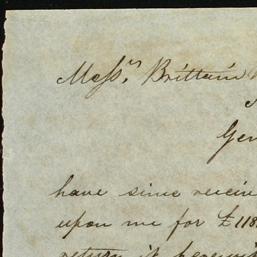 Mess.rs Brittain
Gen
have since receiv
upon me for £118
return it herewi